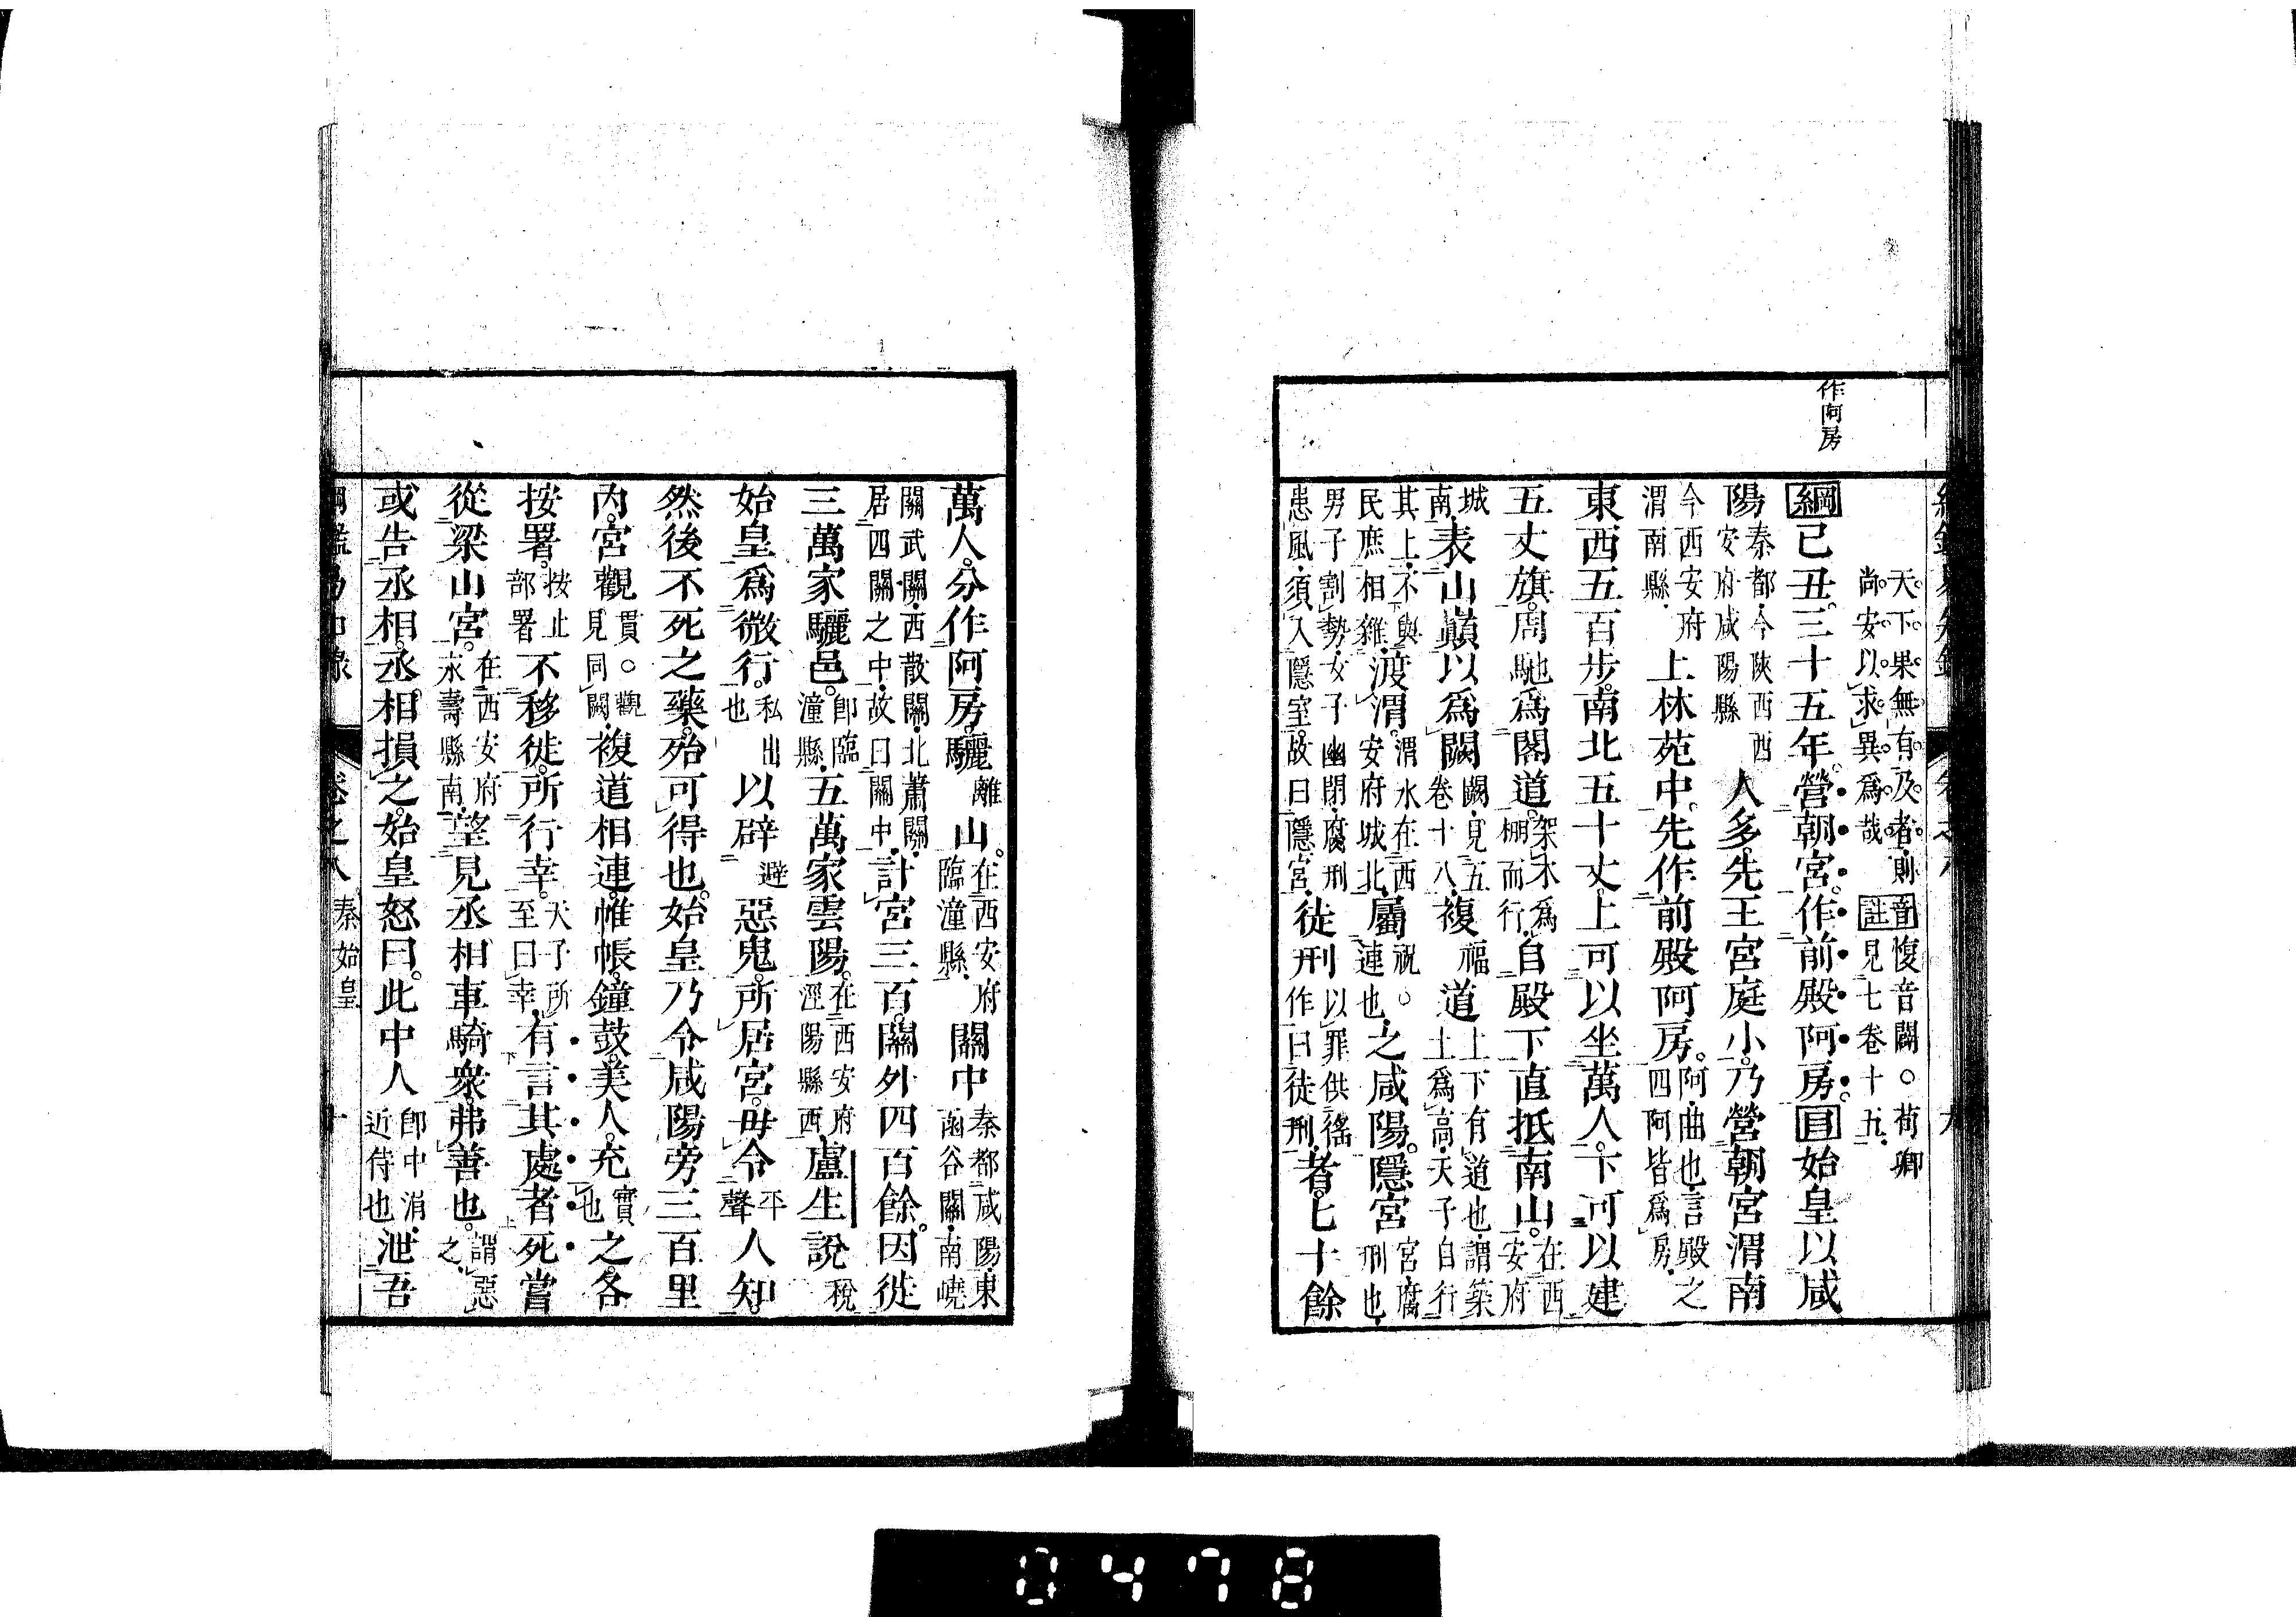 作阿房
天下果無有及者則
尚安以求異爲哉
音愎音闢○荀卿
註見七卷十五
綱己丑三十五年營朝宮作前殿阿房目始皇以咸
陽秦都今陝西西安府咸陽縣人多先王宮庭小乃營朝宮渭南
今西安府渭南縣上林苑中先作前殿阿房阿曲也言殿之四阿皆爲房
東西五百步南北五十丈上可以坐萬人下可以建
五丈旗周馳爲閣道架木爲棚而行自殿下直抵南山在西安府
城南表山巔以爲闕闕見五卷十八複福道上下有道也謂築土爲高天子自行
其上不與民庶相雜渡渭渭水在西安府城北屬祝○連也之咸陽隱宮宮腐刑也
男子割勢女子幽閉腐刑患風須入隱室故曰隱宮徒刑以罪供徭作曰徒刑者七十餘
萬人分作阿房驪離山在西安府臨潼縣關中秦都咸陽東函谷關南嶢
關武關西散關北蕭關居四關之中故曰關中計宮三百關外四百餘因徙
三萬家驪邑卽臨潼縣五萬家雲陽在西安府涇陽縣西盧生說稅
始皇爲微行私出也以辟避惡鬼所居宮毋令平聲人知
然後不死之藥殆可得也始皇乃令咸陽旁三百里
內宮觀貫○觀見同闕複道相連帷帳鐘鼓美人充實也之各
按署按止部署不移徙所行幸天子所至曰幸有言其處者死嘗
從梁山宮在西安府永壽縣南望見丞相車騎衆弗善也謂惡之
或告丞相丞相損之始皇怒曰此中人卽中涓近侍也泄吾
卷之八 秦始皇 十
0478